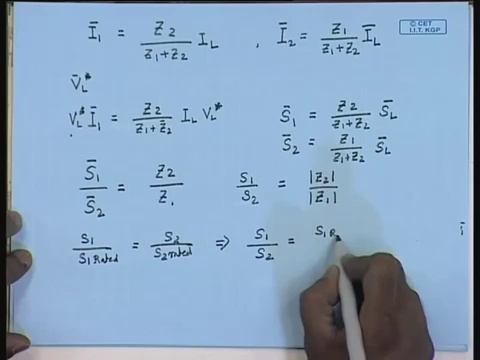 Ī₁ = Z₂ / (Z₁+Z₂) I_L , Ī₂ = Z₁ / (Z₁+Z₂) Ī_L
© CET
I.I.T. KGP
V̄_L*
V_L* Ī₁ = Z₂ / (Z₁+Z₂) I_L V_L*
S̄₁ = Z₂ / (Z₁+Z₂) S̄_L
S̄₂ = Z₁ / (Z₁+Z₂) S̄_L
S̄₁ / S̄₂ = Z₂ / Z₁
S₁ / S₂ = |Z₂| / |Z₁|
S₁ / S₁ Rated = S₂ / S₂ rated ⇒ S₁ / S₂ = S₁ R